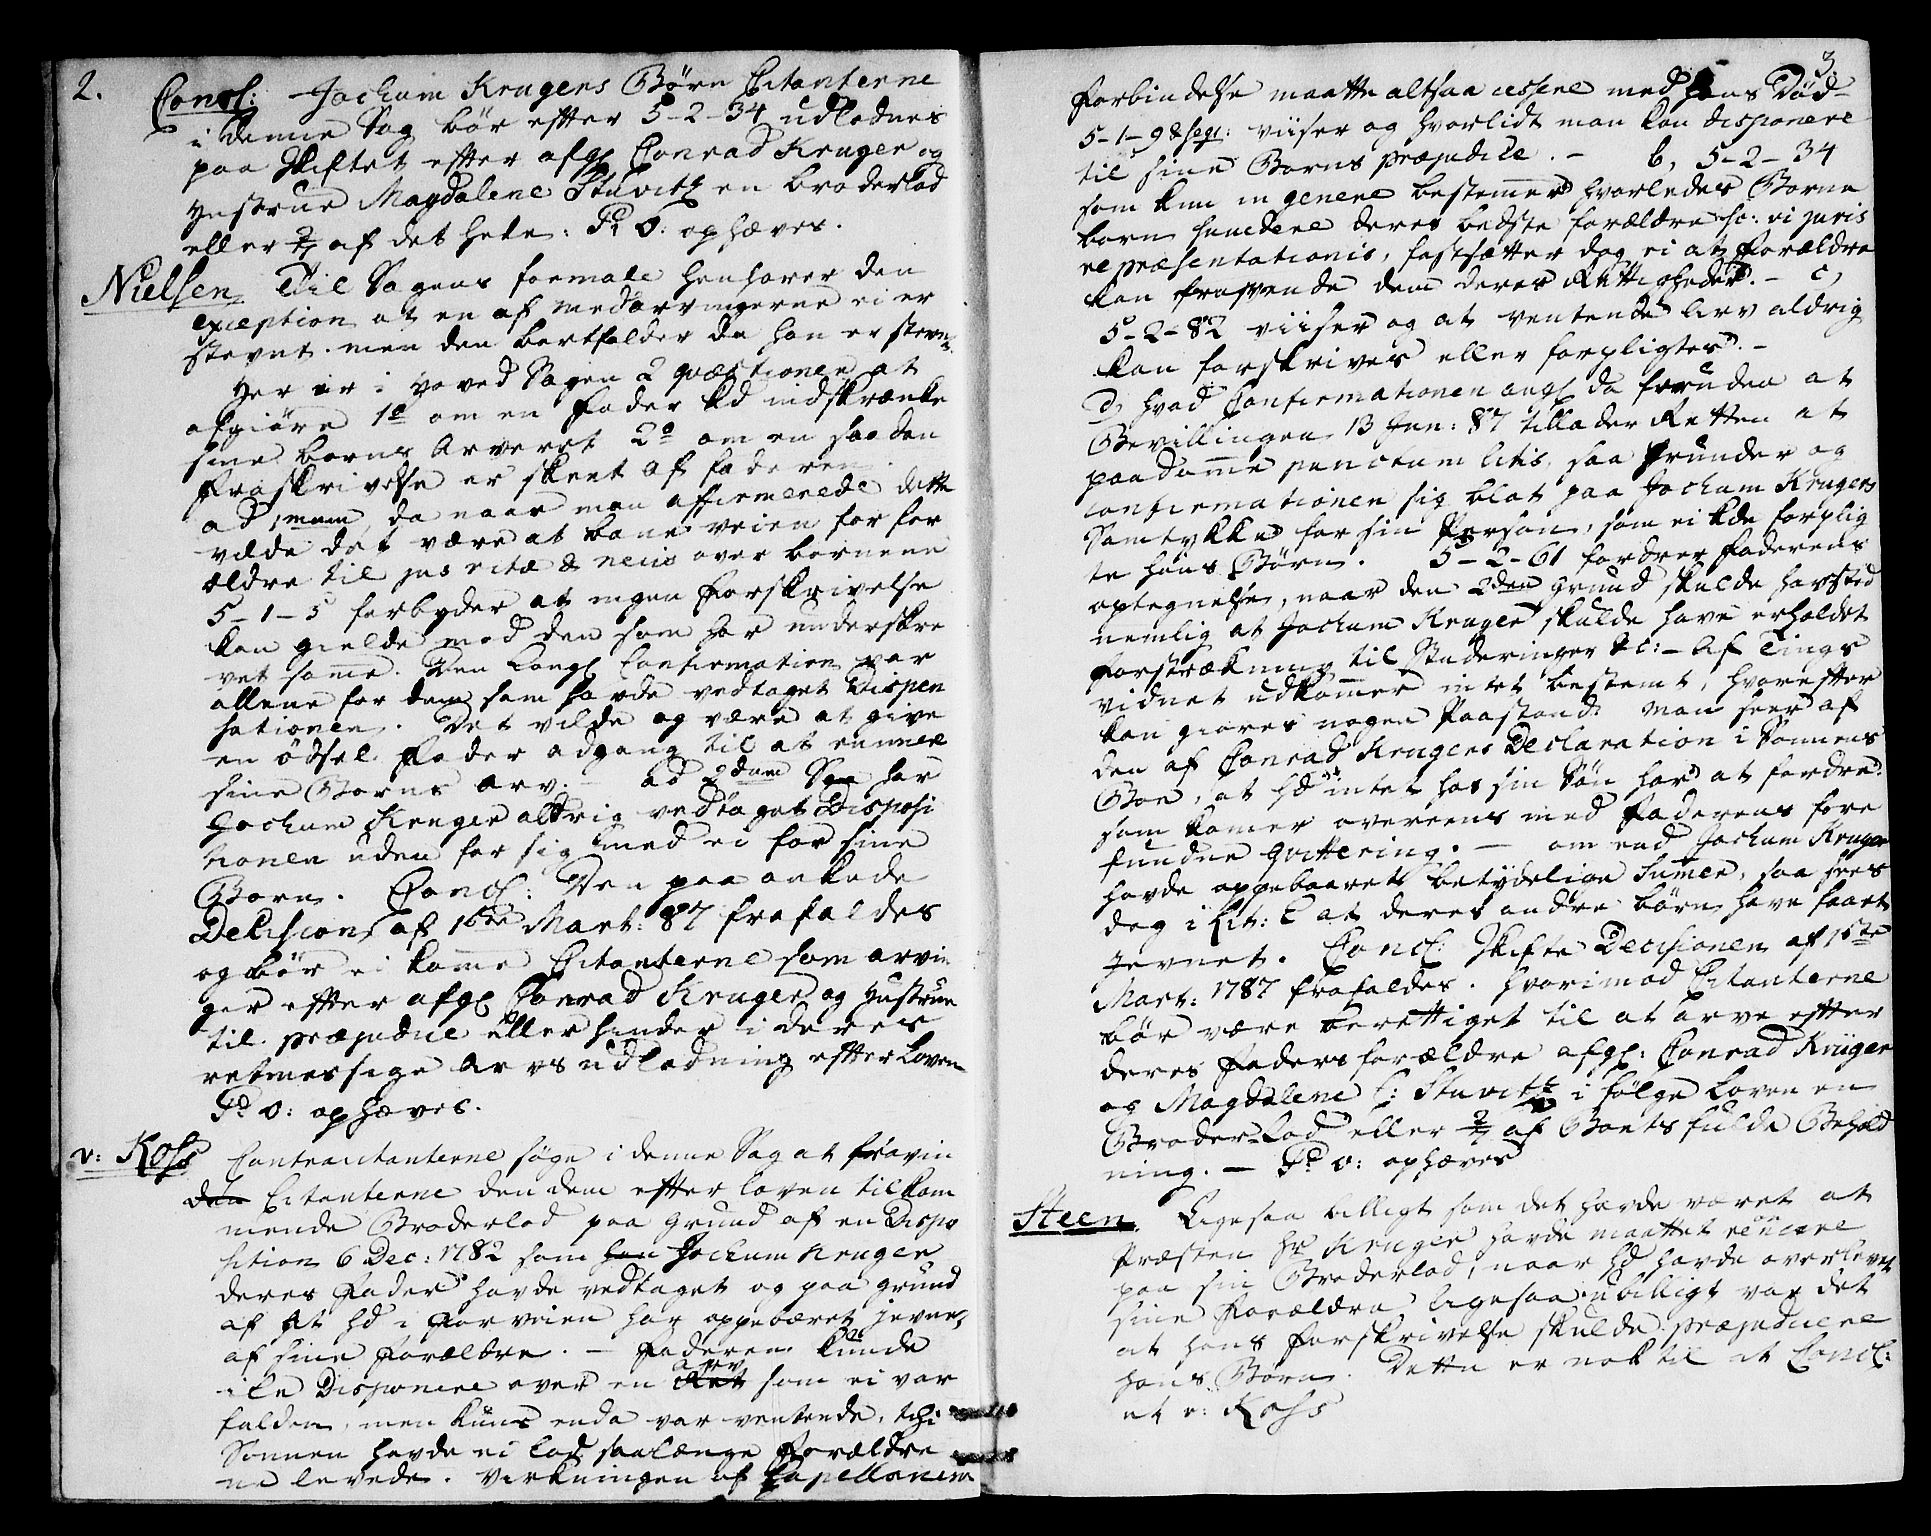 2.
Concl: Jochum Krugers Børn Citanterne
i denne Sag bør efter 5-2-34 udlodnes
paa Skiftet efter afg. Conrad Kruger og
Hustrue Magdalene Stuvitz en broderlod
eller 2/7 af det hele. P: O: ophæves.
Nielsen Til Sagens formale henhører den
exception at en af medarvingerne ei er
stevnt. men den bortfalder da han er stevnt.
Her er i hoved Sagen 2 qvæstioner at
afgiøre 1o om en Fader kd indskrænke
sine børns Arveret 2o om en saadan
fraskrivelse er skeet af faderen.
ad 1mum, da naar man affirmerede dette
vilde det være at bane veien for for
ældre til jus vitæ & necis over børnene
5-1-5 forbyder at ingen Forskrivelse
kan gielde mod den som har underskre
vet samme. Den Kongl Confirmation var
allene for dem som havde vedtaget Dispen
sationen. Det vilde og være at give
en ødsel Fader adgang til at ruinere
sine Børns Arv. – ad 2dum Saa har
Jochum Kruger aldrig vedtaget Disposi
tionen uden for sig med ei for sine
Børn. Concl: Den paa ankede
Decision af 16de Mart: 87 frafaldes
og bør ei komme Citanterne som arvin
ger efter afg. Conrad Kruger og Hustrue
til præjudice eller hinder i deres
retmessige Arvs udlodning efter Loven
P: O: ophæves.
v: Koss Contracitanterne søge i denne Sag at fravin
den Citanterne den dem efter loven tilkom
mende Broderlod paa grund af en Dispo
sition 6 Dec: 1782 som han Jochum Kruger
deres Fader havde vedtaget og paa grund
af at hd i Forveien har oppebæret Jevnet
af sine Forældre. – Faderen kunde
ikke Disponere over en Ret arv som ei var
falden, men kuns enda var ventende, thi
Sønnen havde ei lod saalænge Forældre
ne levede. Virkningen af Capellanens
3.
Forbindelse maatte altsaa cessere med hans Død
5-1-9 & seqv: viiser og hvorlidt man kan disponere
til sine Børns præjudice. – b, 5-2-34
som kun in genere bestemer hvorledes Børne
børn succedere deres bedste forældre sc: vi juris
repræsentationis, fastsætter dog ei at Forældre
kan fravende dem deres Rettigheder. – c,
5-2-82 viiser og at ventende Arv aldrig
kan forskrives eller forpligtes. –
d, hvad Confirmationen ang. da foruden at
Bevillingen 13 Jun: 87 tillader Retten at
paadømme punctum litis, saa grunder og
confirmationen sig blot paa Jochum Krugers
Samtykke for sin Person, som ei kde forplig
te hans Børn. 5-2-61 fordrer Faderens
optegnelse, naar den 2den grund skulde hav sted
nemlig at Jochum Kruger skulde have erholdet
forstrækning til Studeringer &c: – Af Tings
vidnet udkommer intet bestemt, hvorefter
kan giøres nogen Paastand. Man seer af
den af Conrad Krugers Declaration i Sønnens
Boe, at hd intet hos sin Søn har at fordre
som kommer overeens med Faderens fore
fundne qvittering. – om end Jochum Kruger
havde oppebaaret betydelige Summer, saa sees
dog i Lit: E at deres andre børn have faaet
Jevnet. Concl: Skifte Decisionen af 16de
Mart: 1787 frafaldes. hvorimod Citanterne
bør være berettiget til at arve efter
deres Faders forældre afg: Conrad Krüger
og Magdalene C: Stuvitz i følge loven en
Broder-Lod eller 2/7 af Boets fulde Behold
ning. – P: O: ophæves
Steen. Ligesaa billigt som det havde været at
Præsten Hr Kruger havde maattet reuicere
paa sin Broderlod, naar hd havde overlevet
sine Forældre ligesaa ubilligt var det
at hans Forskrivelse skulde præjudicere
hans Børn. Dette er nok til at Concl:
ut v: Koss